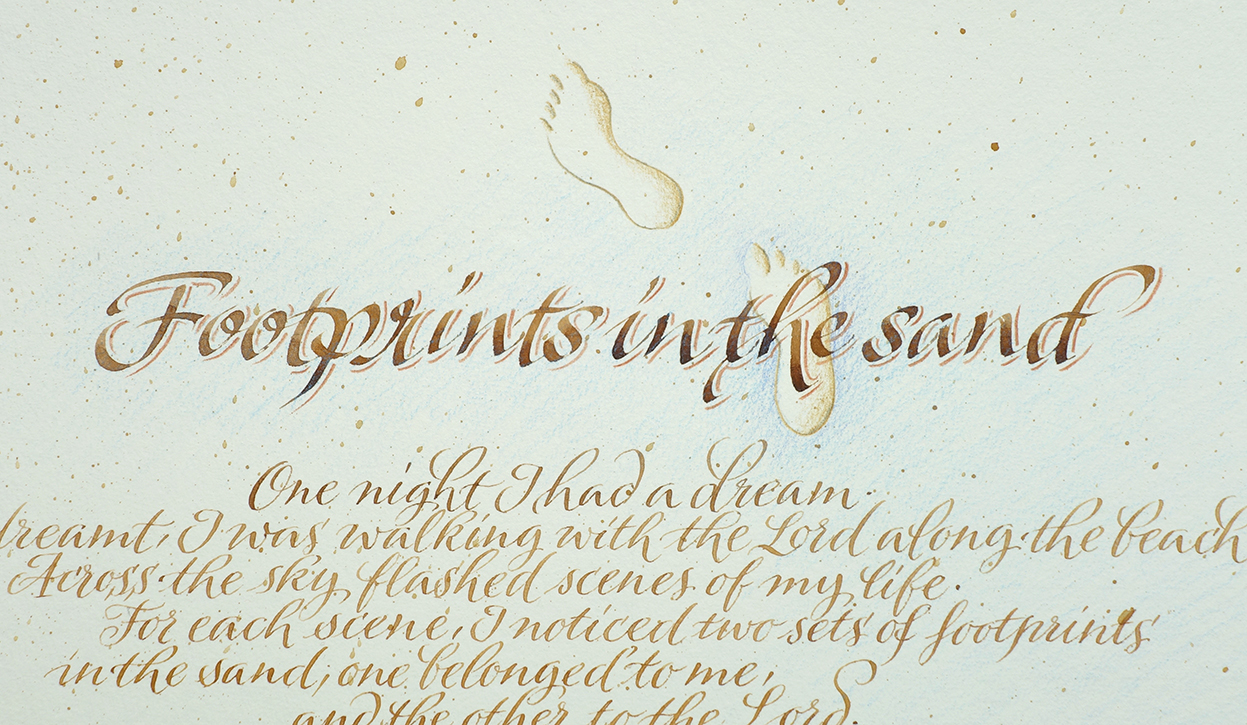 Footprints in the sand
One night I had a dream.
dreamt, I was walking with the Lord along the beach
Across the sky flashed scenes of my life.
For each scene, I noticed two sets of footprints
in the sand, one belonged to me,
and the other to the Lord.